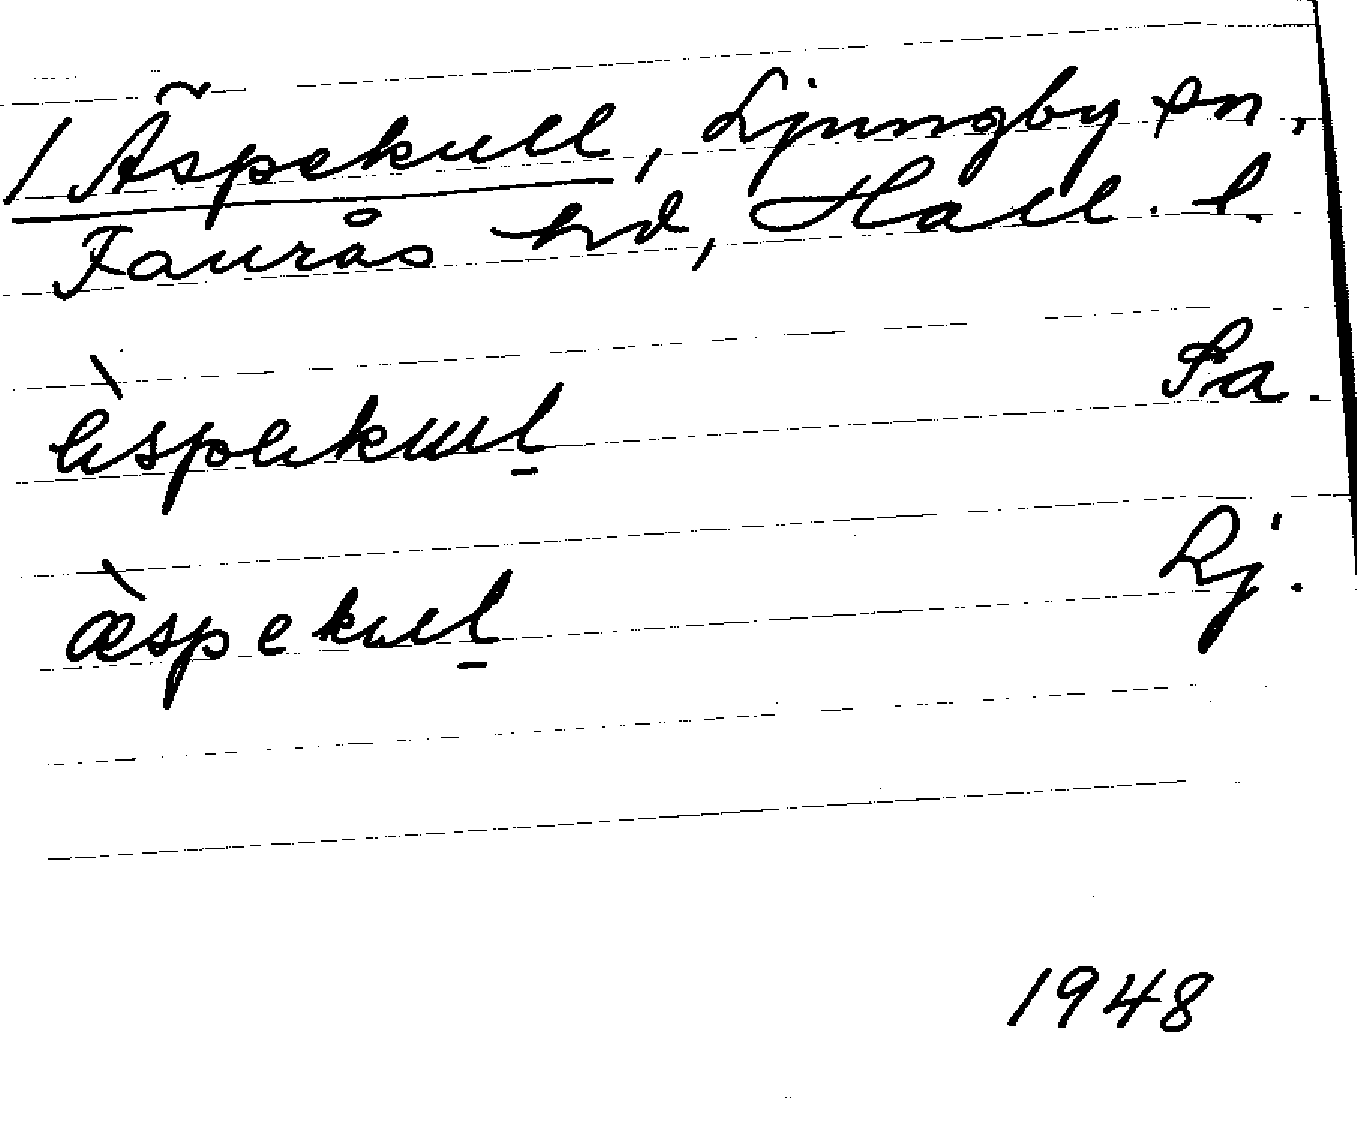 / Äspekull, Ljungby sn.
Faurås hd, Hall. l.
èspekul̲ Sa.
æ̀spekul̲ Lj.
1948